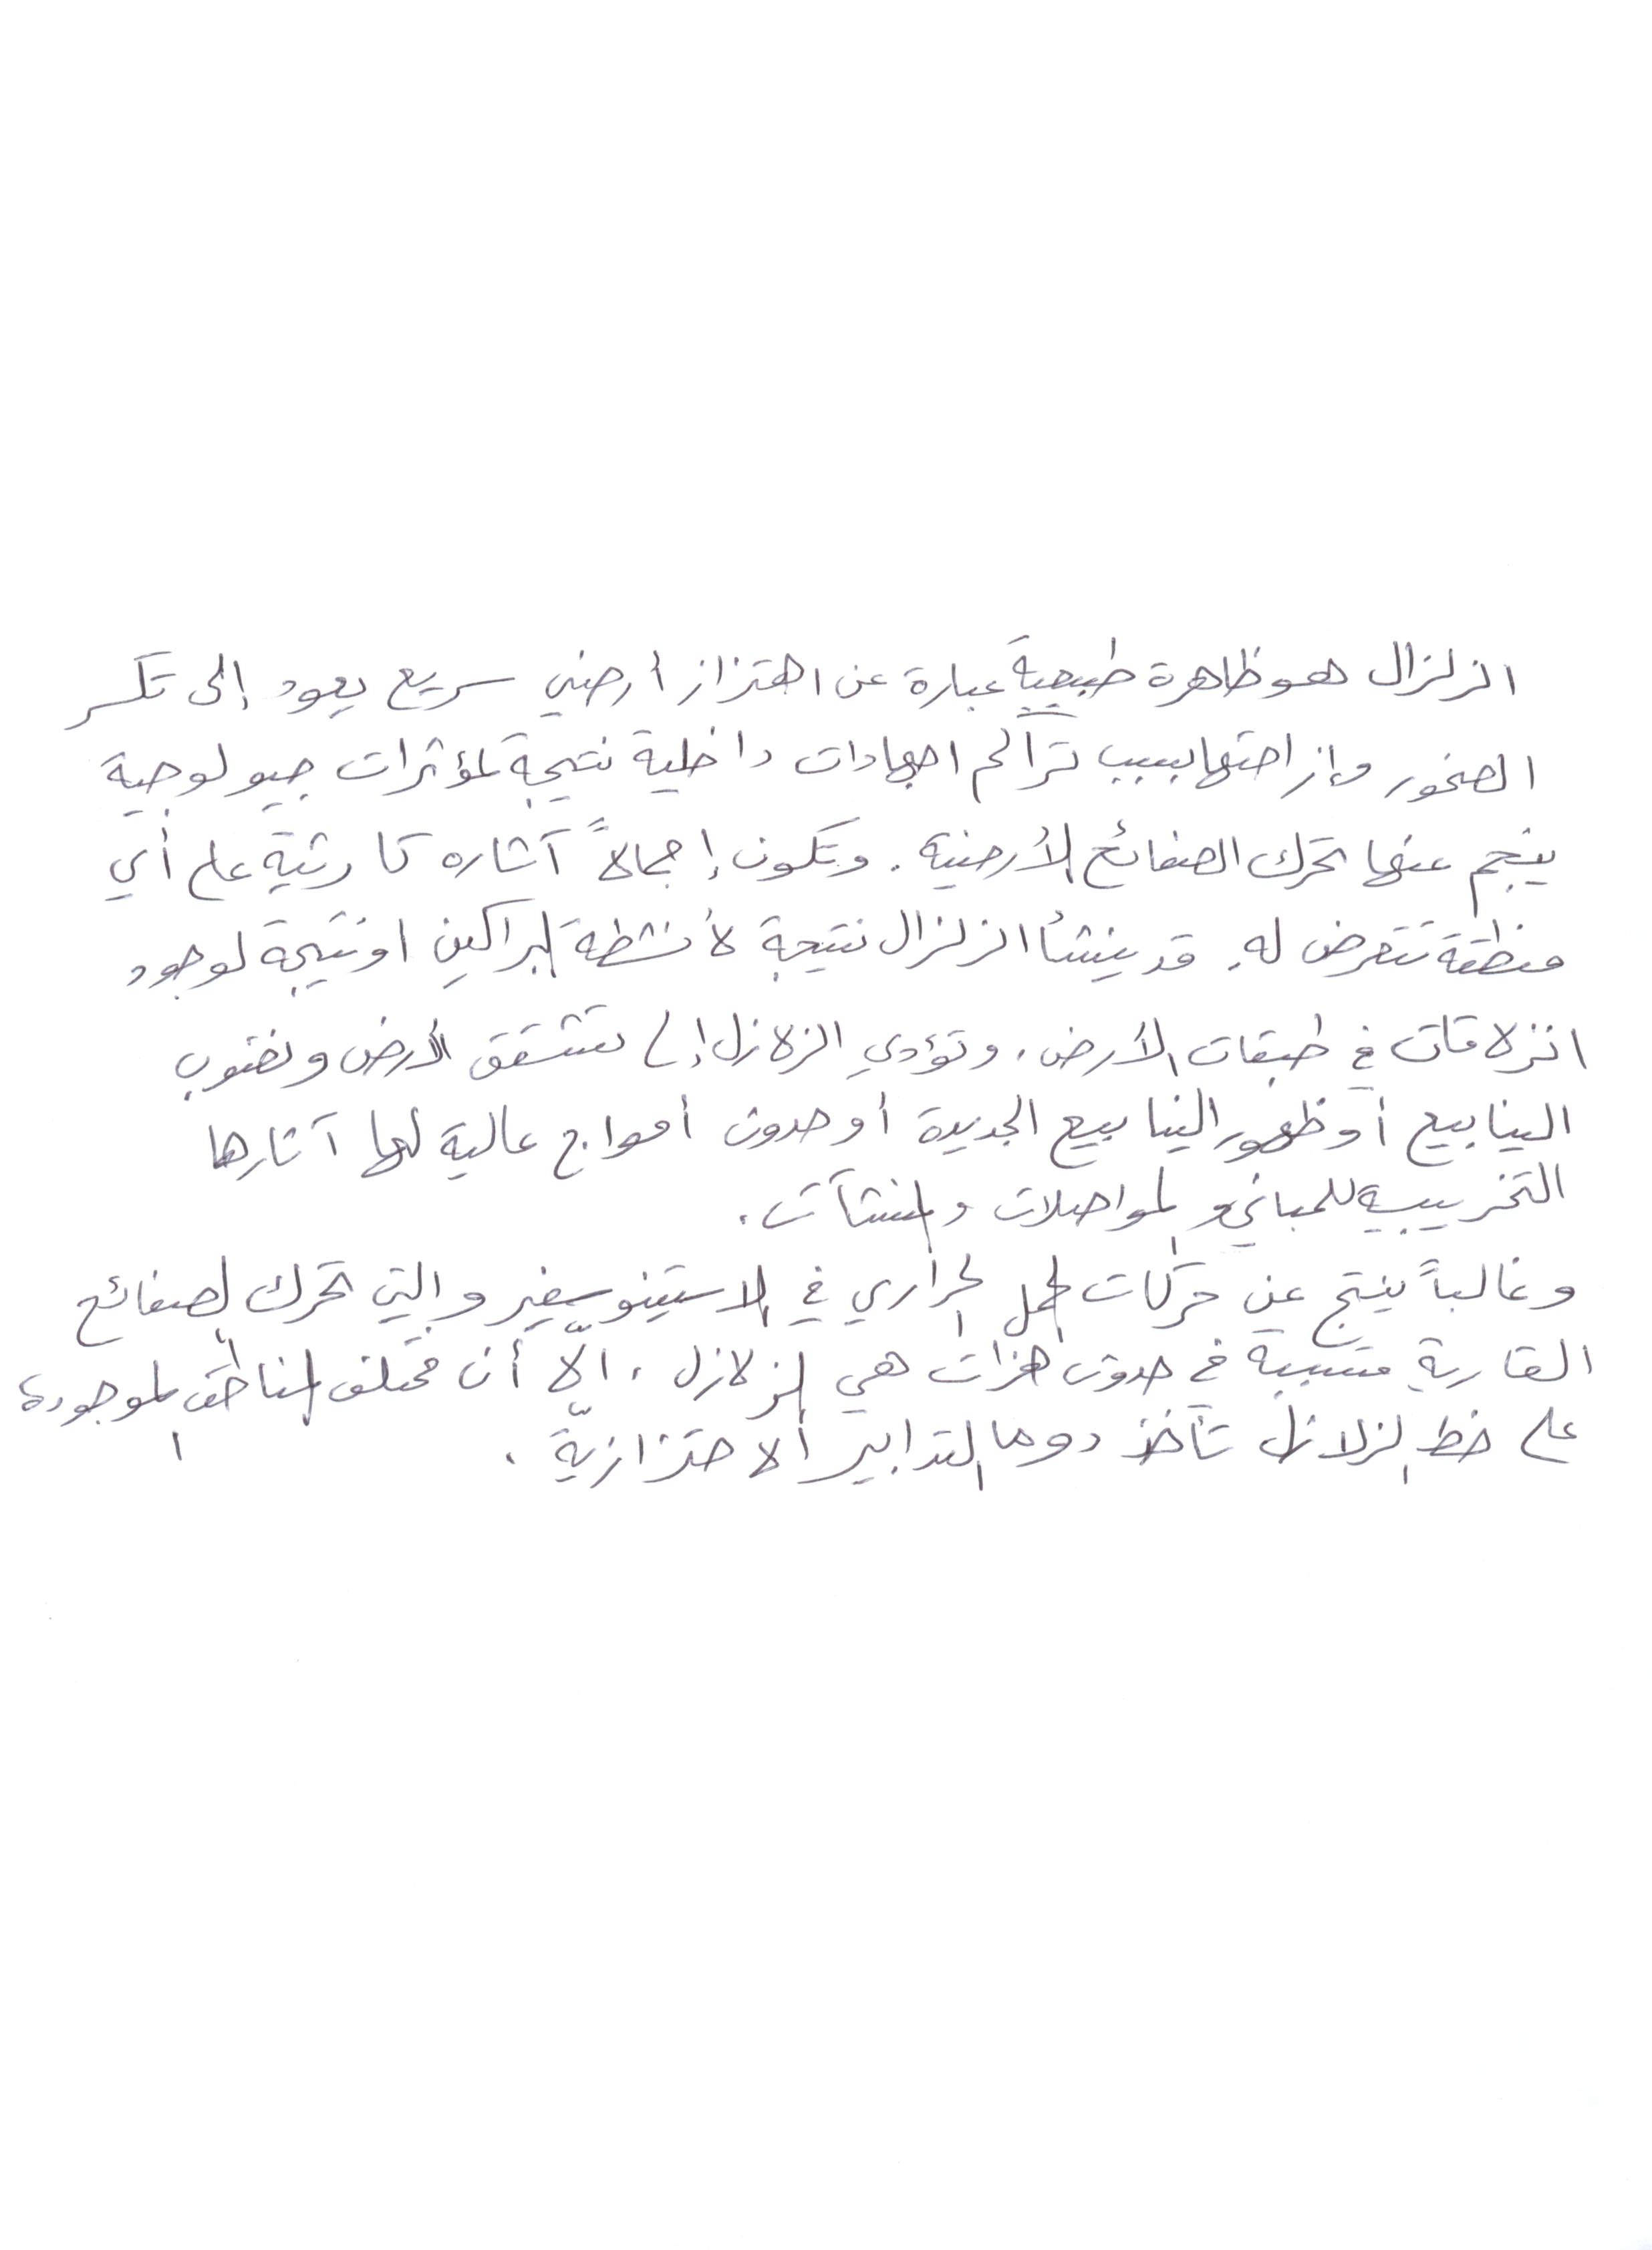 الزلزال هو ظاهرة طبيعية عبارة عن اهتزاز أرضي سريع يعود إلى تكسر
الصخور وإزاحتها بسبب تراكم اجهادات داخلية نتيجة لمؤثرات جيولوجية
ينجم عنها تحرك الصفائح الأرضية. وتكون إجمالاً آثاره كارثية على أي
منطقة تتعرض له. قد ينشأ الزلزال نتيجة لأنشطة البراكين او نتيجة لوجود
انزلاقات في طبقات الأرض. وتؤدي الزلازل إلى تشقق الأرض ونضوب
الينابيع أو ظهور الينابيع الجديدة أو حدوث أمواج عالية لها آثارها
التخريبية للمباني والمواصلات والمنشآت.
وغالباً ينتج عن حركات الحمل الحراري في الاستينوسفير والتي تحرك الصفائح
القارية متسببة في حدوث هزات هي الزلازل. الّا أن مختلف المناطق الموجودة
على خط الزلازل تأخذ دوما التدابير الاحترازيّة.